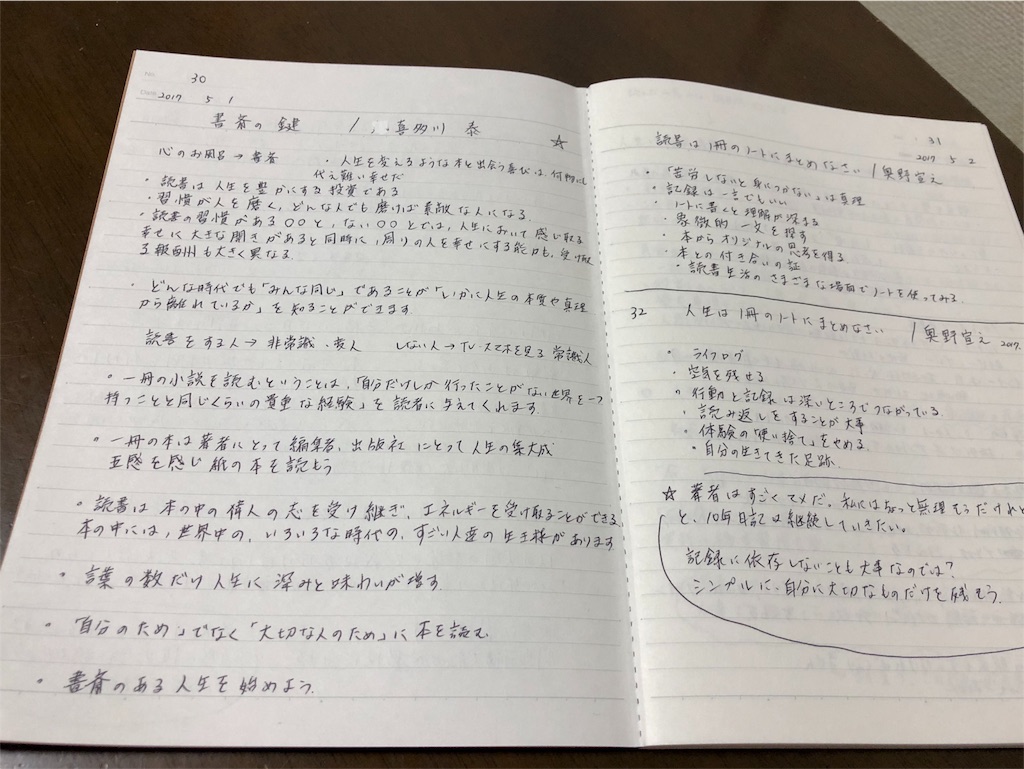 No.
30
Date 2017 5 1
書斎の鍵 / 喜多川 泰 ☆
心のお風呂→書斎
・人生を変えるような本と出会う喜びは、何物にも
代え難い幸せだ
・読書は人生を豊かにする投資である
・習慣が人を磨く、どんな人でも磨けば素敵な人になる。
・読書の習慣がある〇〇と、ない〇〇とでは、人生において感じ取る
幸せに大きな開きがあると同時に、周りの人を幸せにする能力も、受け取
る報酬も大きく異なる。
・どんな時代でも「みんな同じ」であることが「いかに人生の本質や真理
から離れているか」を知ることができます
読書をする人→非常識、変人 しない人→TV・スマホを見る 常識人
・一冊の小説を読むということは、「自分だけしか行ったことがない世界を一つ
持つことと同じくらいの貴重な経験」を読者に与えてくれます。
・一冊の本は著者にとって編集者、出版社にとって人生の集大成
五感を感じ紙の本を読もう
・読書は本の中の偉人の志を受け継ぎ、エネルギーを受け取ることができる。
本の中には、世界中の、いろいろな時代の、すごい人達の生き様があります
・言葉の数だけ人生に深みと味わいが増す。
・「自分のため」でなく「大切な人のため」に本を読む
・書斎のある人生を始めよう。
31
2017 5 2
読書は1冊のノートにまとめなさい / 奥野宣之
・「苦労しないと身につかない」は真理
・記録は一言でもいい
・ノートに書くと理解が深まる
・象徴的一文を探す
・本からオリジナルの思考を得る
・本との付き合いの証
・読書生活のさまざまな場面でノートを使ってみる。
32 人生は1冊のノートにまとめなさい / 奥野宣之 2017.
・ライフログ
・空気を残せる
・行動と記録は深いところでつながっている。
・読み返しをすることが大事
・体験の「使い捨て」をやめる。
・自分の生きてきた足跡。
☆ 著者はすごくマメだ。私にはちょっと無理そうだけれ
と、10年日記は継続していきたい。
記録に依存しないことも大事なのでは?
シンプルに、自分に大切なものだけを残そう。